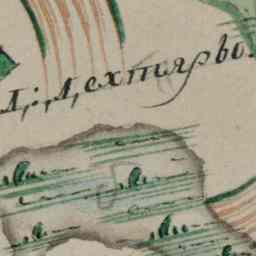 Д: Дехтярво.